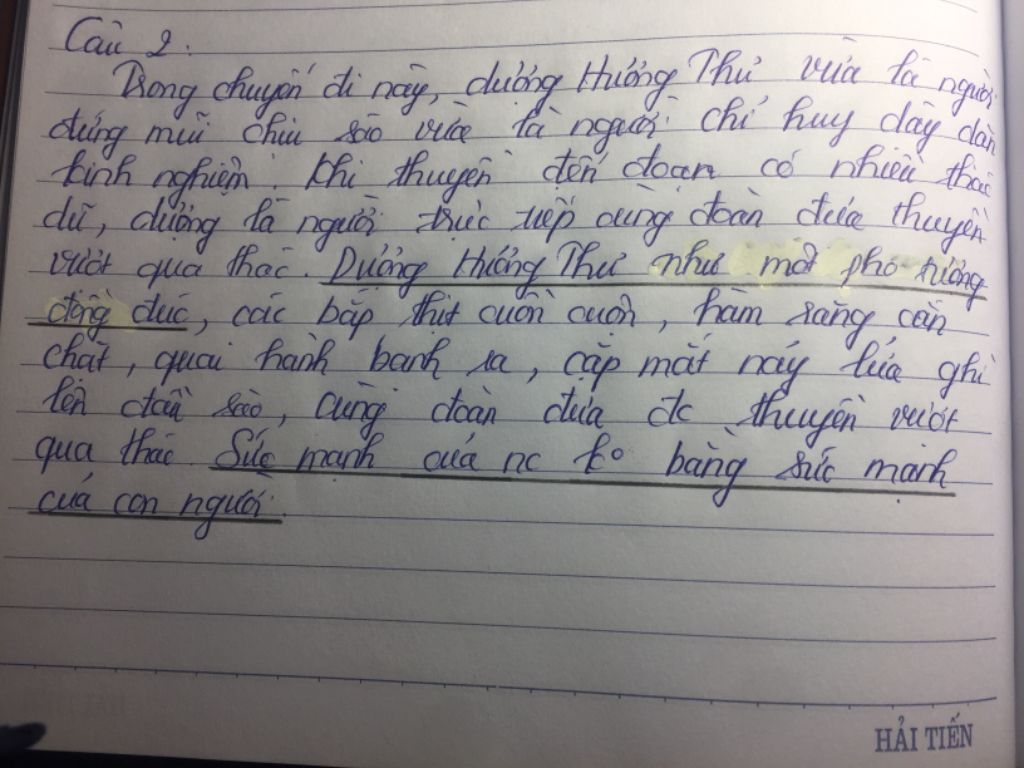 Câu 2:
Trong chuyến đi này, dượng Hương Thư vừa là người
đứng mũi chịu sào vừa là người chỉ huy dày dặn
kinh nghiệm. Khi thuyền đến đoạn có nhiều thác
dữ, dượng là người trực tiếp cùng đoàn đưa thuyền
vượt qua thác. Dượng Hương Thư như một pho tượng
đồng đúc, các bắp thịt cuồn cuộn, hàm răng cắn
chặt, quai hành banh ra, cặp mắt nảy lửa ghì
lên đầu sào, cùng đoàn đưa đc thuyền vượt
qua thác. Sức mạnh của nc ko bằng sức mạnh
của con người.
HẢI TIẾN